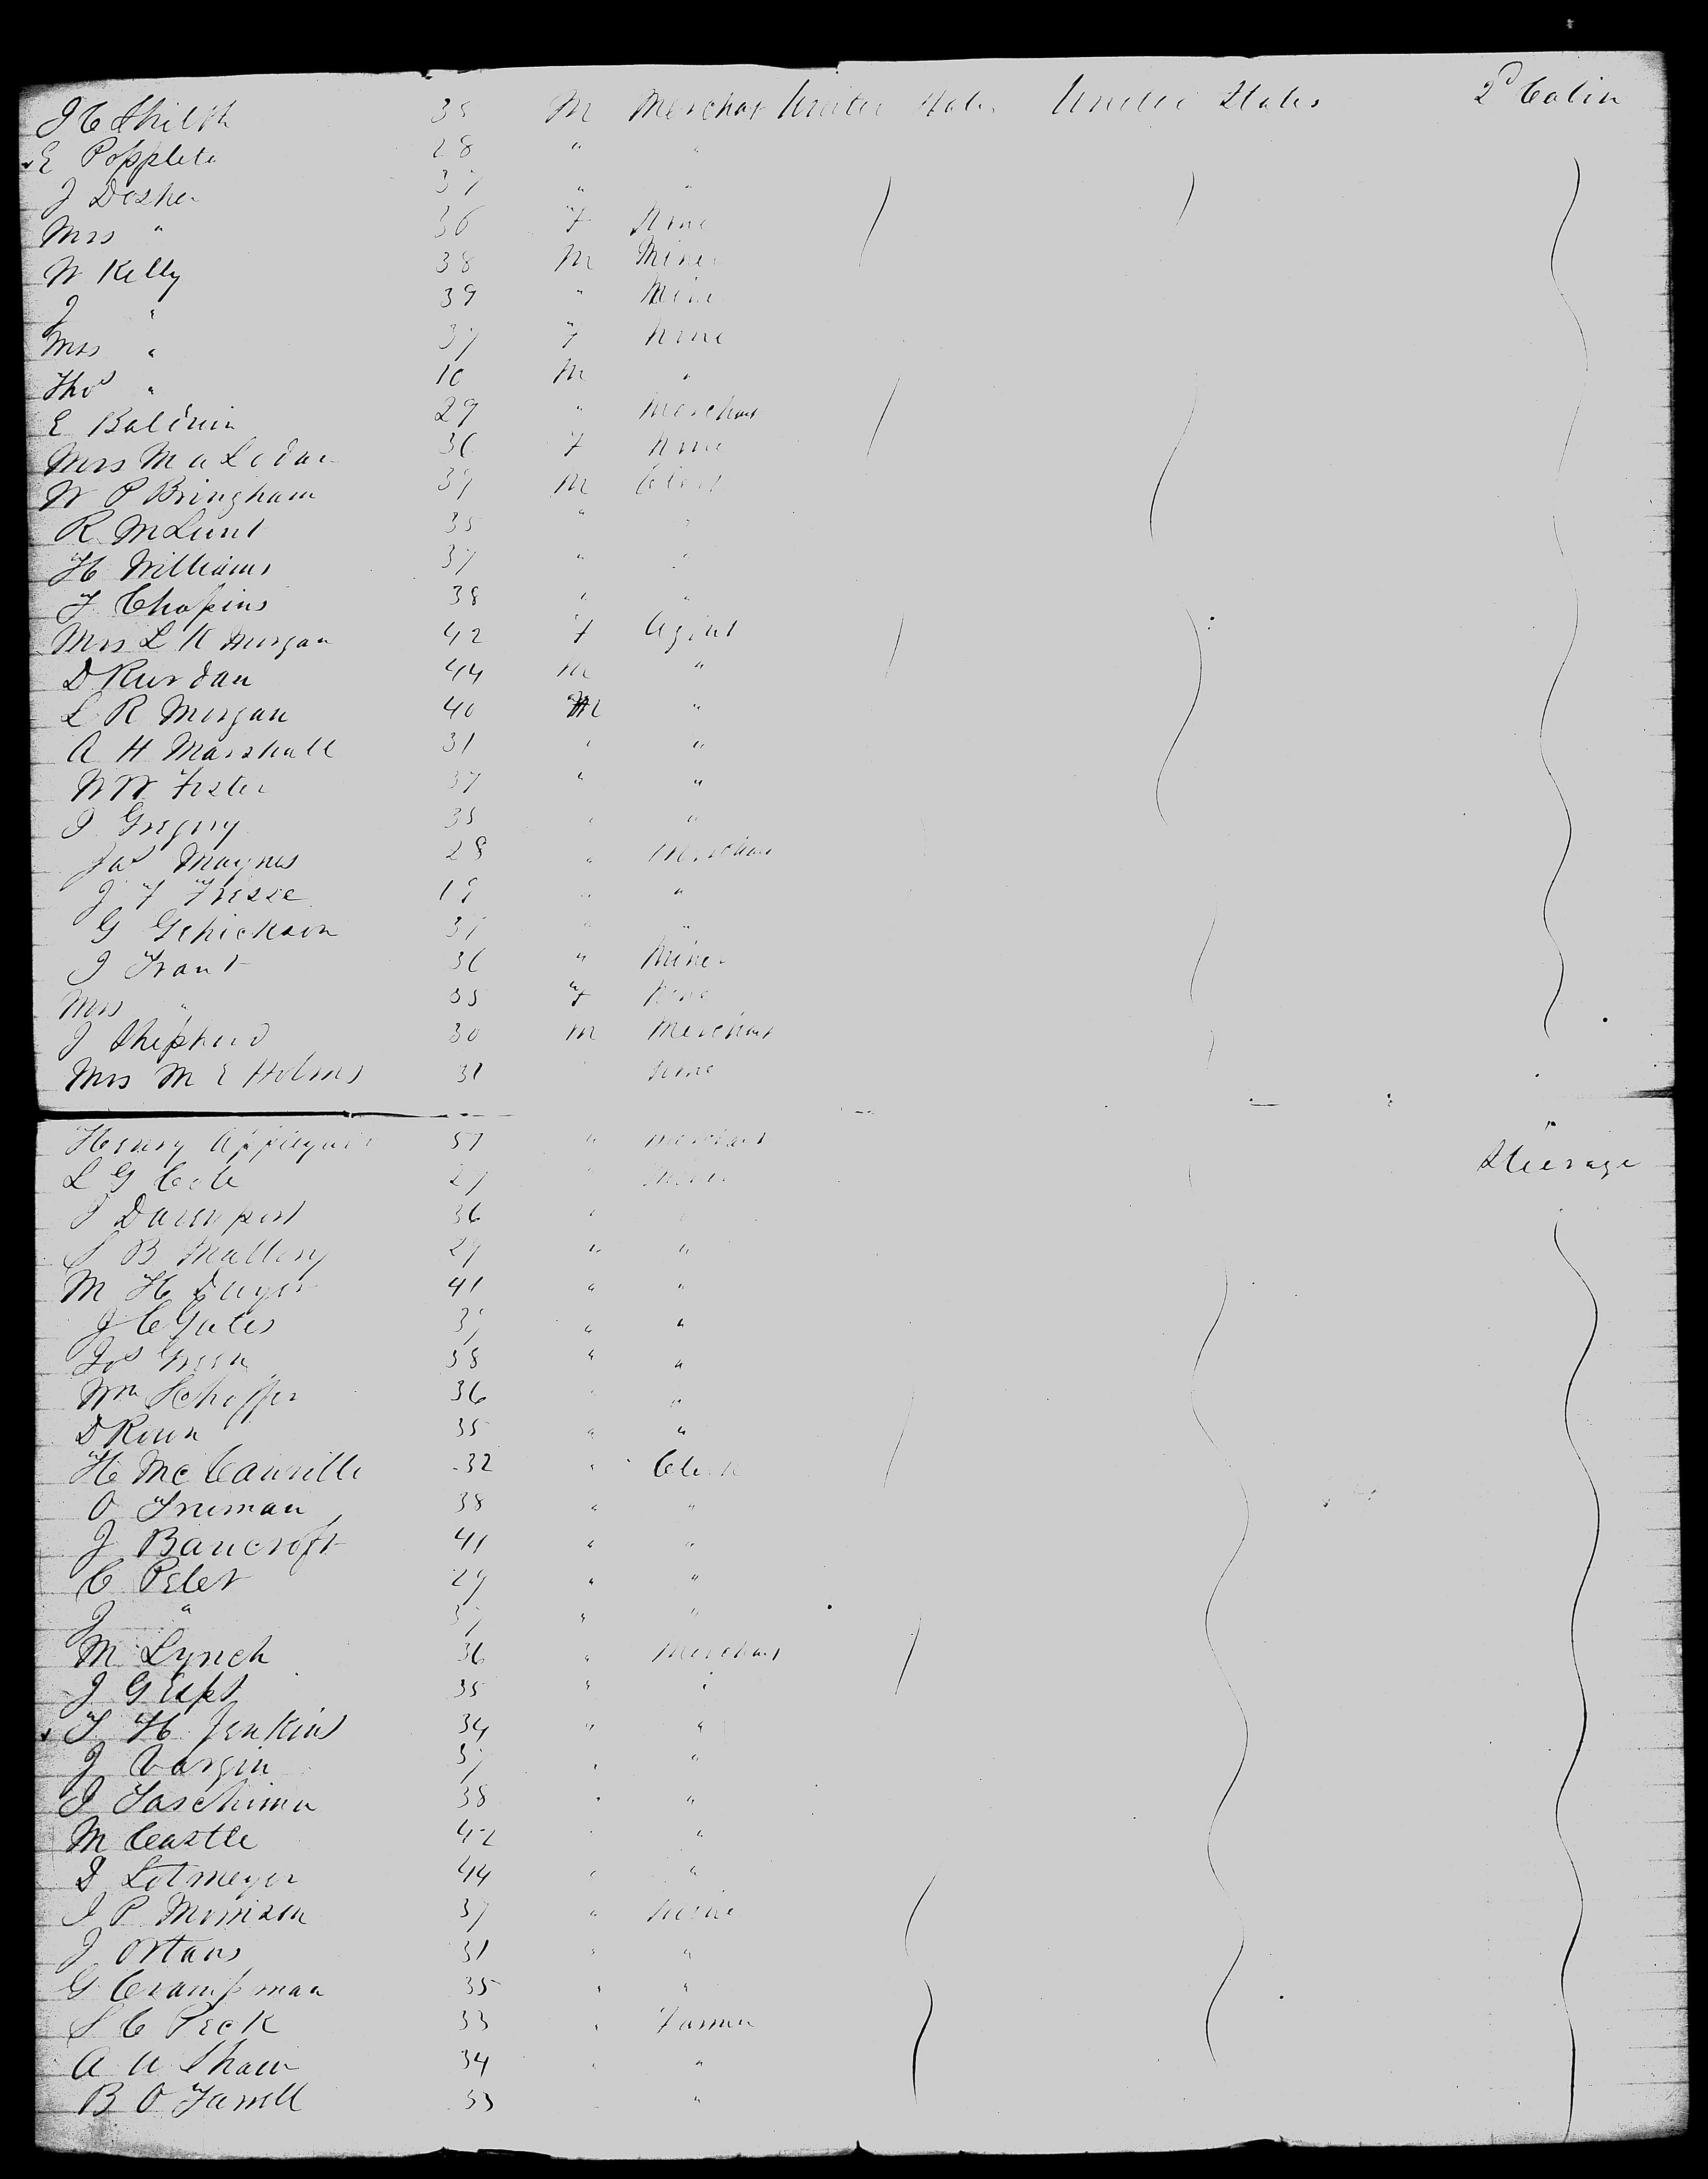 J C Shilth 35 M Merchat United States United States 2d Cabin
E Popplete 28 " "
J Dosher 37 " "
Mrs " 36 F None
W Kelly 38 M Miner
J " 39 " Mine
Mrs " 37 F None
Thos " 10 M "
E Baldwin 29 " Merchant
Mrs M a 36 F None
W P Bringham 37 M Clerk
R McLunt 35 " "
H Williams 37 " "
J Chapins 38 " "
Mrs L R Morgan 42 F Agent
D Rurdan 44 M "
L R Morgan 40 M "
A H Marshall 31 " "
W W Foster 37 " "
J Gregory 35 " "
Jas Maynes 28 " Merchant
J F Friese 19 " "
G 37 " "
J Frant 36 " Miner
Mrs " 35 F None
J Shepherd 30 M Merchant
Mrs M E Holms 31 None
Henry 57 " Merchant Steerage
L G Cole 27 " Miner
J Davenport 36 " "
S B Mallory 29 " "
M H Dwyer 41 " "
J C Gates 37 " "
Jos Green 38 " "
Wm Schaffer 36 " "
D Roun 35 " "
H McCanville 32 " Clerk
O Truman 38 " "
J Bancroft 41 " "
C Peler 29 " "
J " 37 " "
M Lynch 36 " Merchant
J G 35 " "
T H Jenkins 34 " "
J Vorgin 37 " "
J Taschima 38 " "
M Castle 42 " "
D Lotmeyer 44 " "
J P Morrison 37 " Mine
J Ortans 31 " "
G Crampman 35 " "
S C Peck 33 " Farmer
A A Shaw 34 " "
B O Farrell 33 "